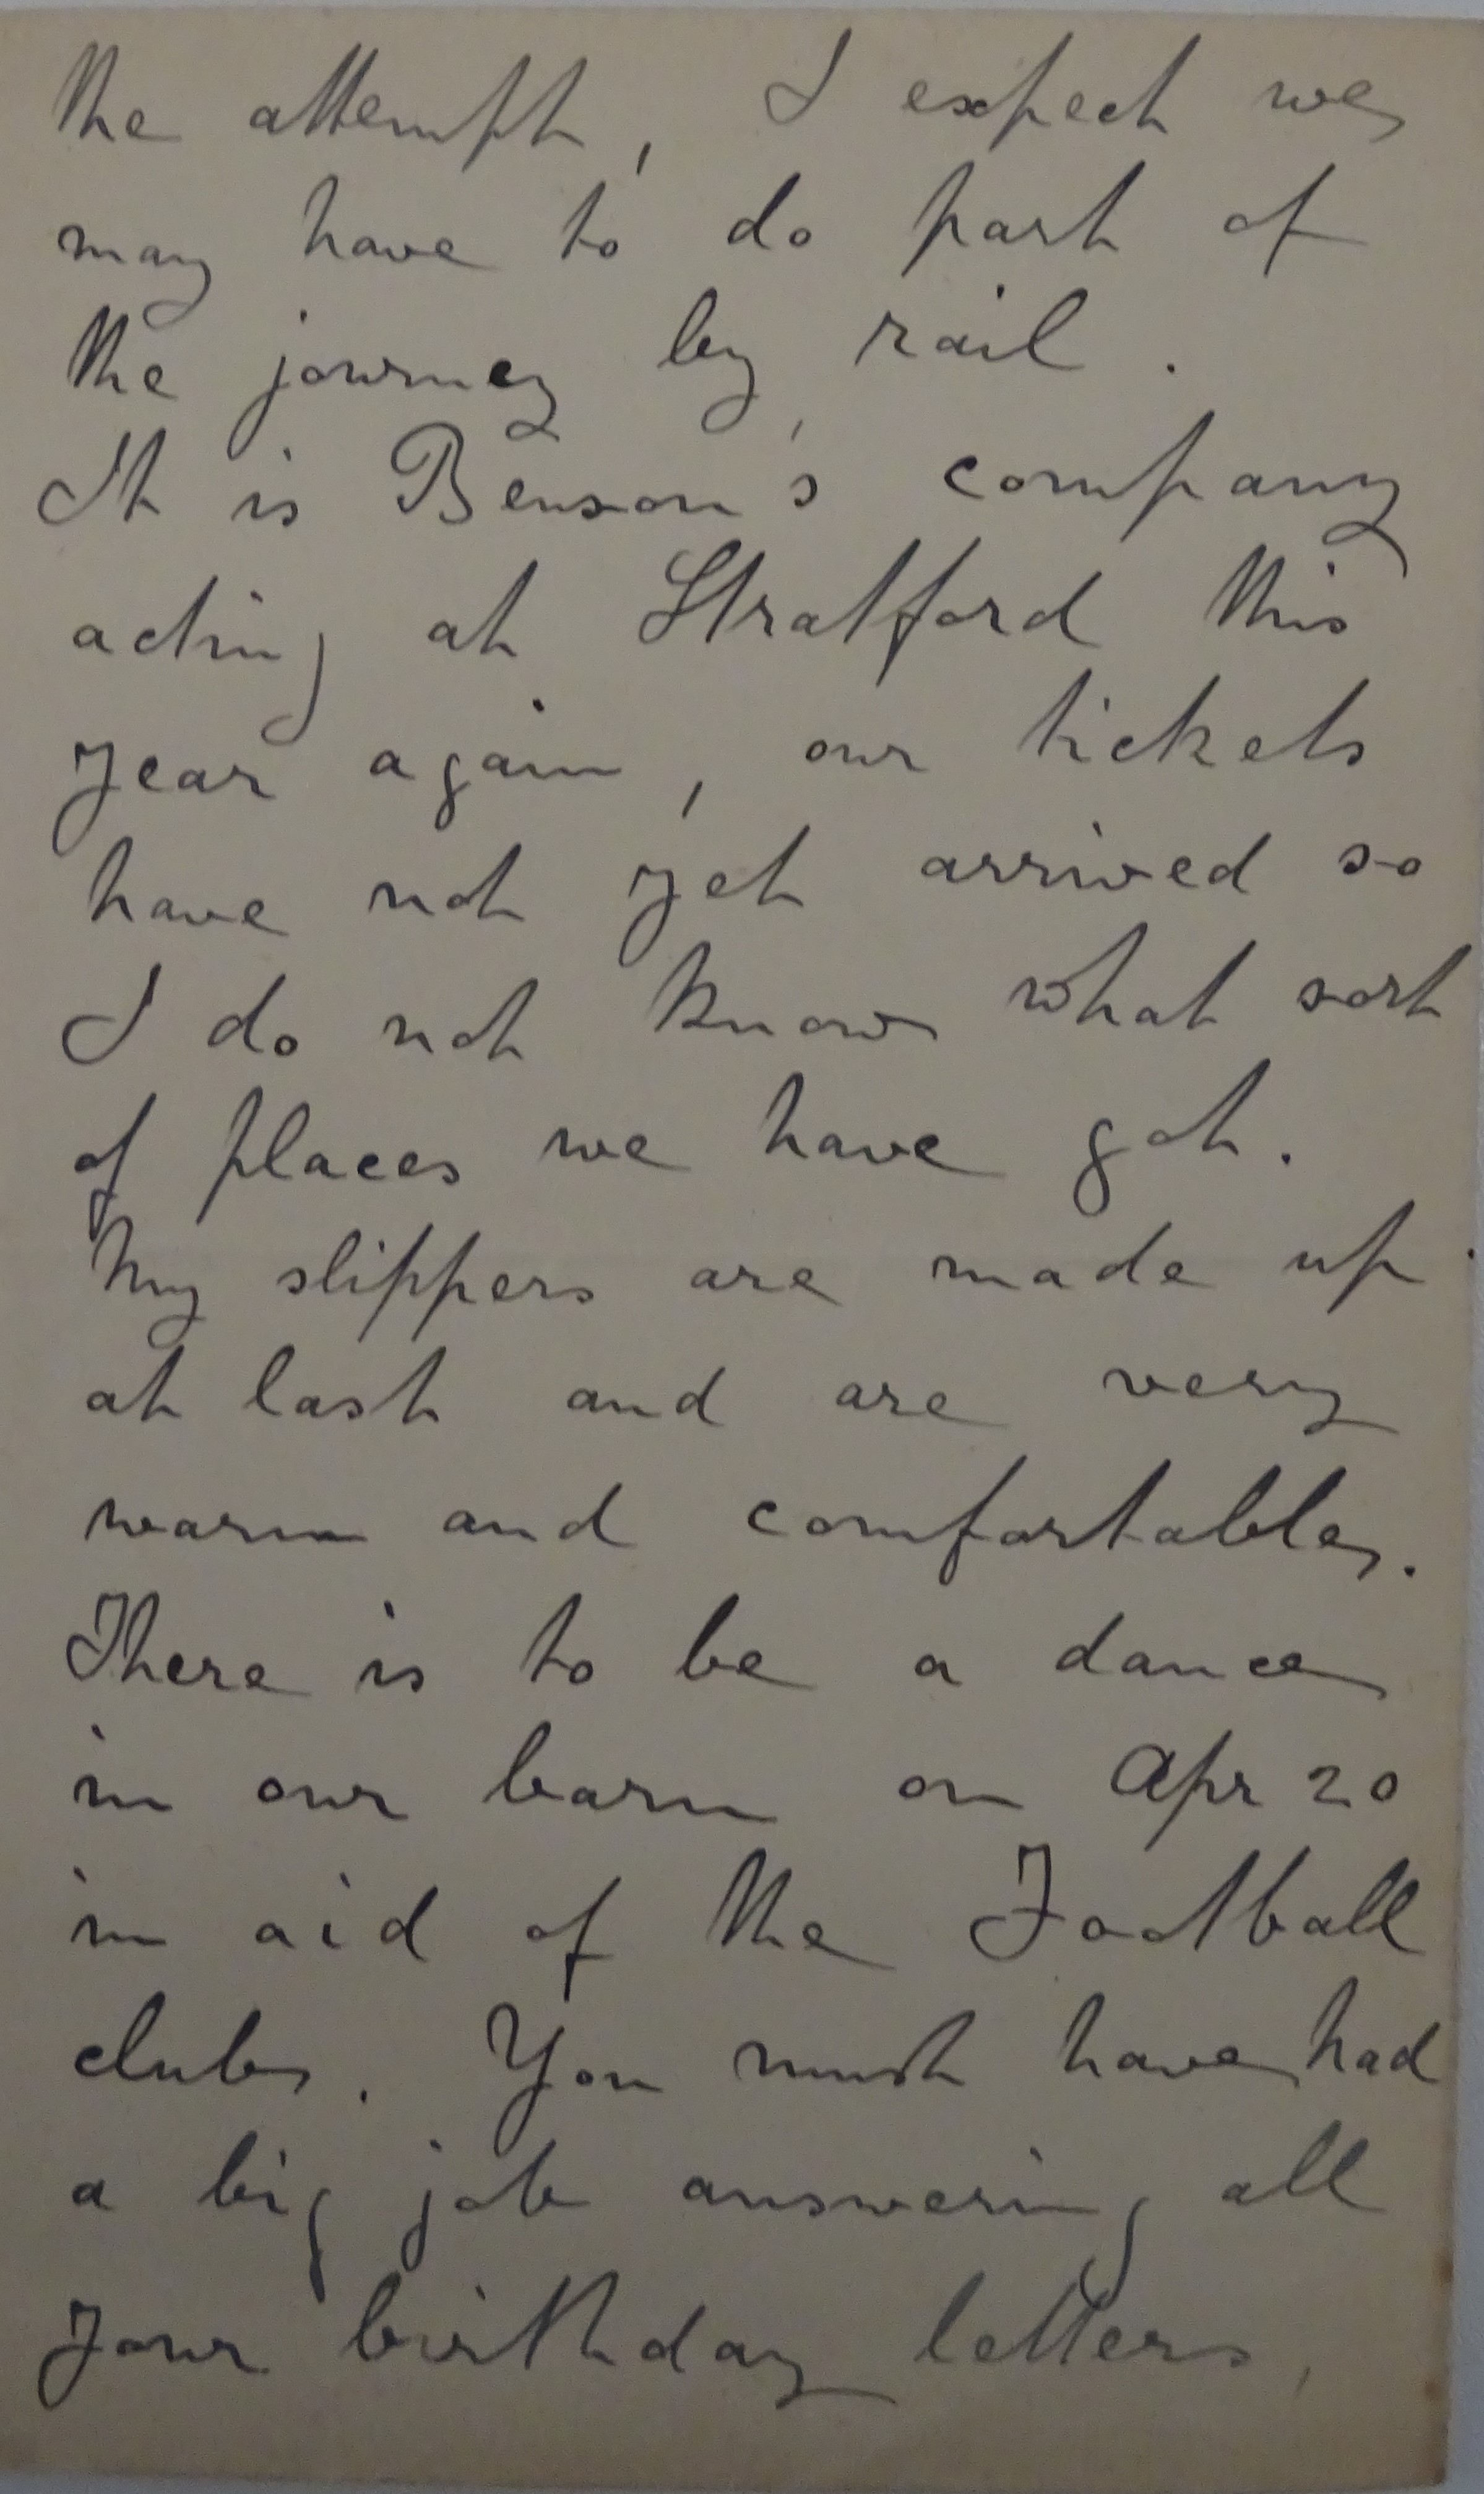 the attempt, I expect we
may have to do part of
the journey by rail.
It is Benson's company
acting at Stratford this
year again, our tickets
have not yet arrived so
I do not know what sort
of places we have got.
My slippers are made up
at last and are very
warm and comfortable.
There is to be a dance
in our barn on Apr 20
in aid of the Football
clubs. You must have had
a big job answering all
your birthday letters,